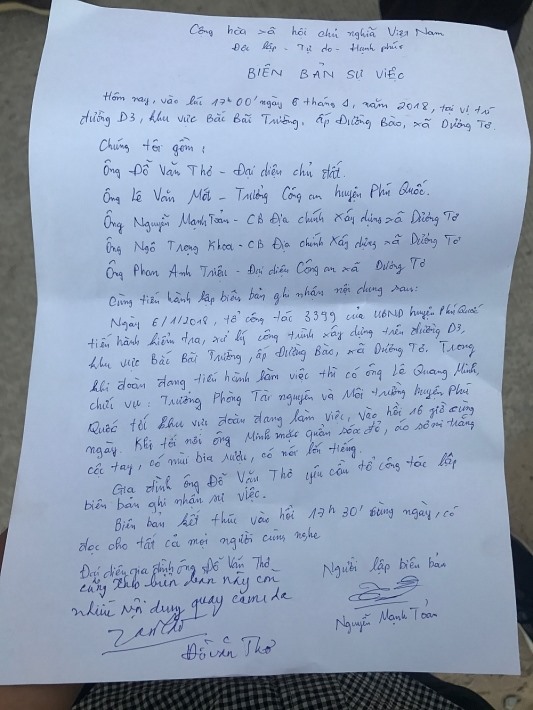 Cộng hòa xã hội chủ nghĩa Việt Nam
Độc lập - Tự do - Hạnh phúc
BIÊN BẢN SỰ VIỆC
Hôm nay, vào lúc 17h00' ngày 6 tháng 1, năm 2018, tại vị trí
đường D3, khu vực Bắc Bãi Trường, ấp Đường Bào, xã Dương Tơ.
Chúng tôi gồm:
Ông Đỗ Văn Thơ - Đại diện chủ đất.
Ông Lê Văn Mót - Trưởng Công an huyện Phú Quốc.
Ông Nguyễn Mạnh Toản - CB Địa chính Xây dựng xã Dương Tơ
Ông Ngô Trọng Khoa - CB Địa chính Xây dựng xã Dương Tơ
Ông Phan Anh Triệu - Đại diện Công an xã Dương Tơ
Cùng tiến hành lập biên bản ghi nhận nội dung sau:
Ngày 6/1/2018, tổ công tác 3399 của UBND huyện Phú Quốc
tiến hành kiểm tra, xử lý công trình xây dựng trên đường D3,
khu vực Bắc Bãi Trường, ấp Đường Bào, xã Dương Tơ. Trong
khi đoàn đang tiến hành làm việc thì có ông Lê Quang Minh,
chức vụ: Trưởng Phòng Tài nguyên và Môi trường huyện Phú
Quốc tới khu vực đoàn đang làm việc, vào hồi 16 giờ cùng
ngày. Khi tới nơi ông Minh mặc quần sóc đỏ, áo sơ mi trắng
cộc tay, có mùi bia rượu, có nói lớn tiếng.
Gia đình ông Đỗ Văn Thơ yêu cầu tổ công tác lập
biên bản ghi nhận sự việc.
Biên bản kết thúc vào hồi 17h30' cùng ngày, có
đọc cho tất cả mọi người cùng nghe
Đại diện gia đình ông Đỗ Văn Thơ
biên bản này còn
nhiều nội dung quay camera
Đỗ Văn Thơ
Người lập biên bản
Nguyễn Mạnh Toản